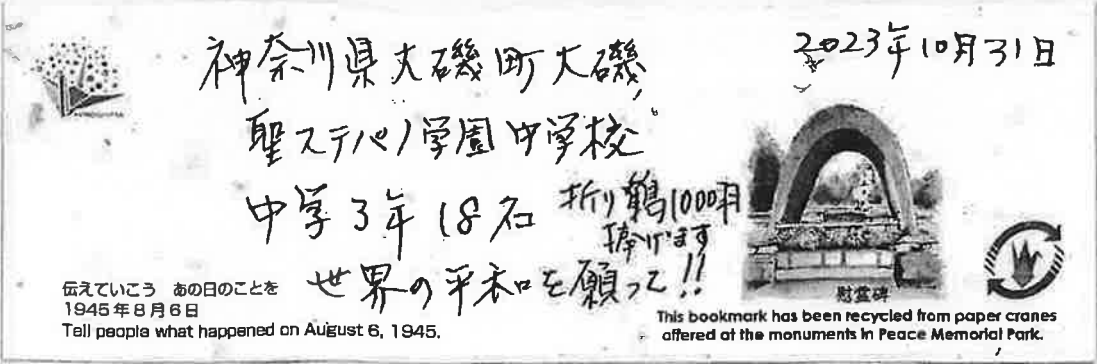 2023年10月31日
神奈川県大磯町大磯
聖ステパノ学園中学校
中学3年18名
折り鶴1000羽
捧げます
世界の平和を願って!!
伝えていこう あの日のことを
1945年8月6日
Tell people what happened on August 6, 1945.
慰霊碑
This bookmark has been recycled from paper cranes
offered at the monuments in Peace Memorial Park.